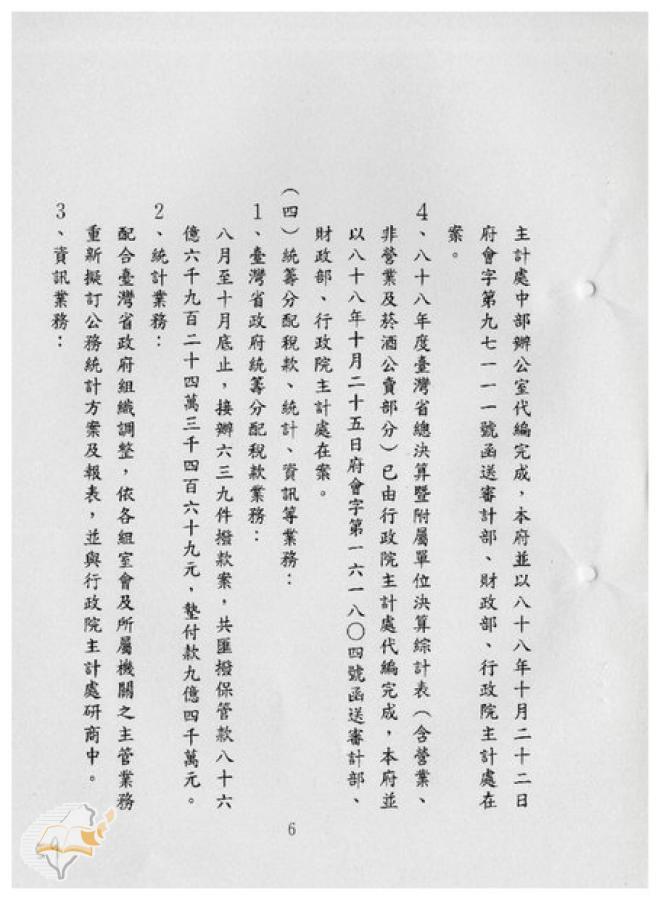 主計處中部辦公室代編完成，本府並以八十八年十月二十二日
府會字第九七一一一號函送審計部、財政部、行政院主計處在
案。
4、八十八年度臺灣省總決算暨附屬單位決算綜計表（含營業、
非營業及菸酒公賣部分）已由行政院主計處代編完成，本府並
以八十八年十月二十五日府會字第一六一八〇四號函送審計部、
財政部、行政院主計處在案。
（四）統籌分配稅款、統計、資訊等業務：
1、臺灣省政府統籌分配稅款業務：
八月至十月底止，接辦六三九件撥款案，共匯撥保管款八十六
億六千九百二十四萬三千四百六十九元，墊付款九億四千萬元。
2、統計業務：
配合臺灣省政府組織調整，依各組室會及所屬機關之主管業務
重新擬訂公務統計方案及報表，並與行政院主計處研商中。
3、資訊業務：
6